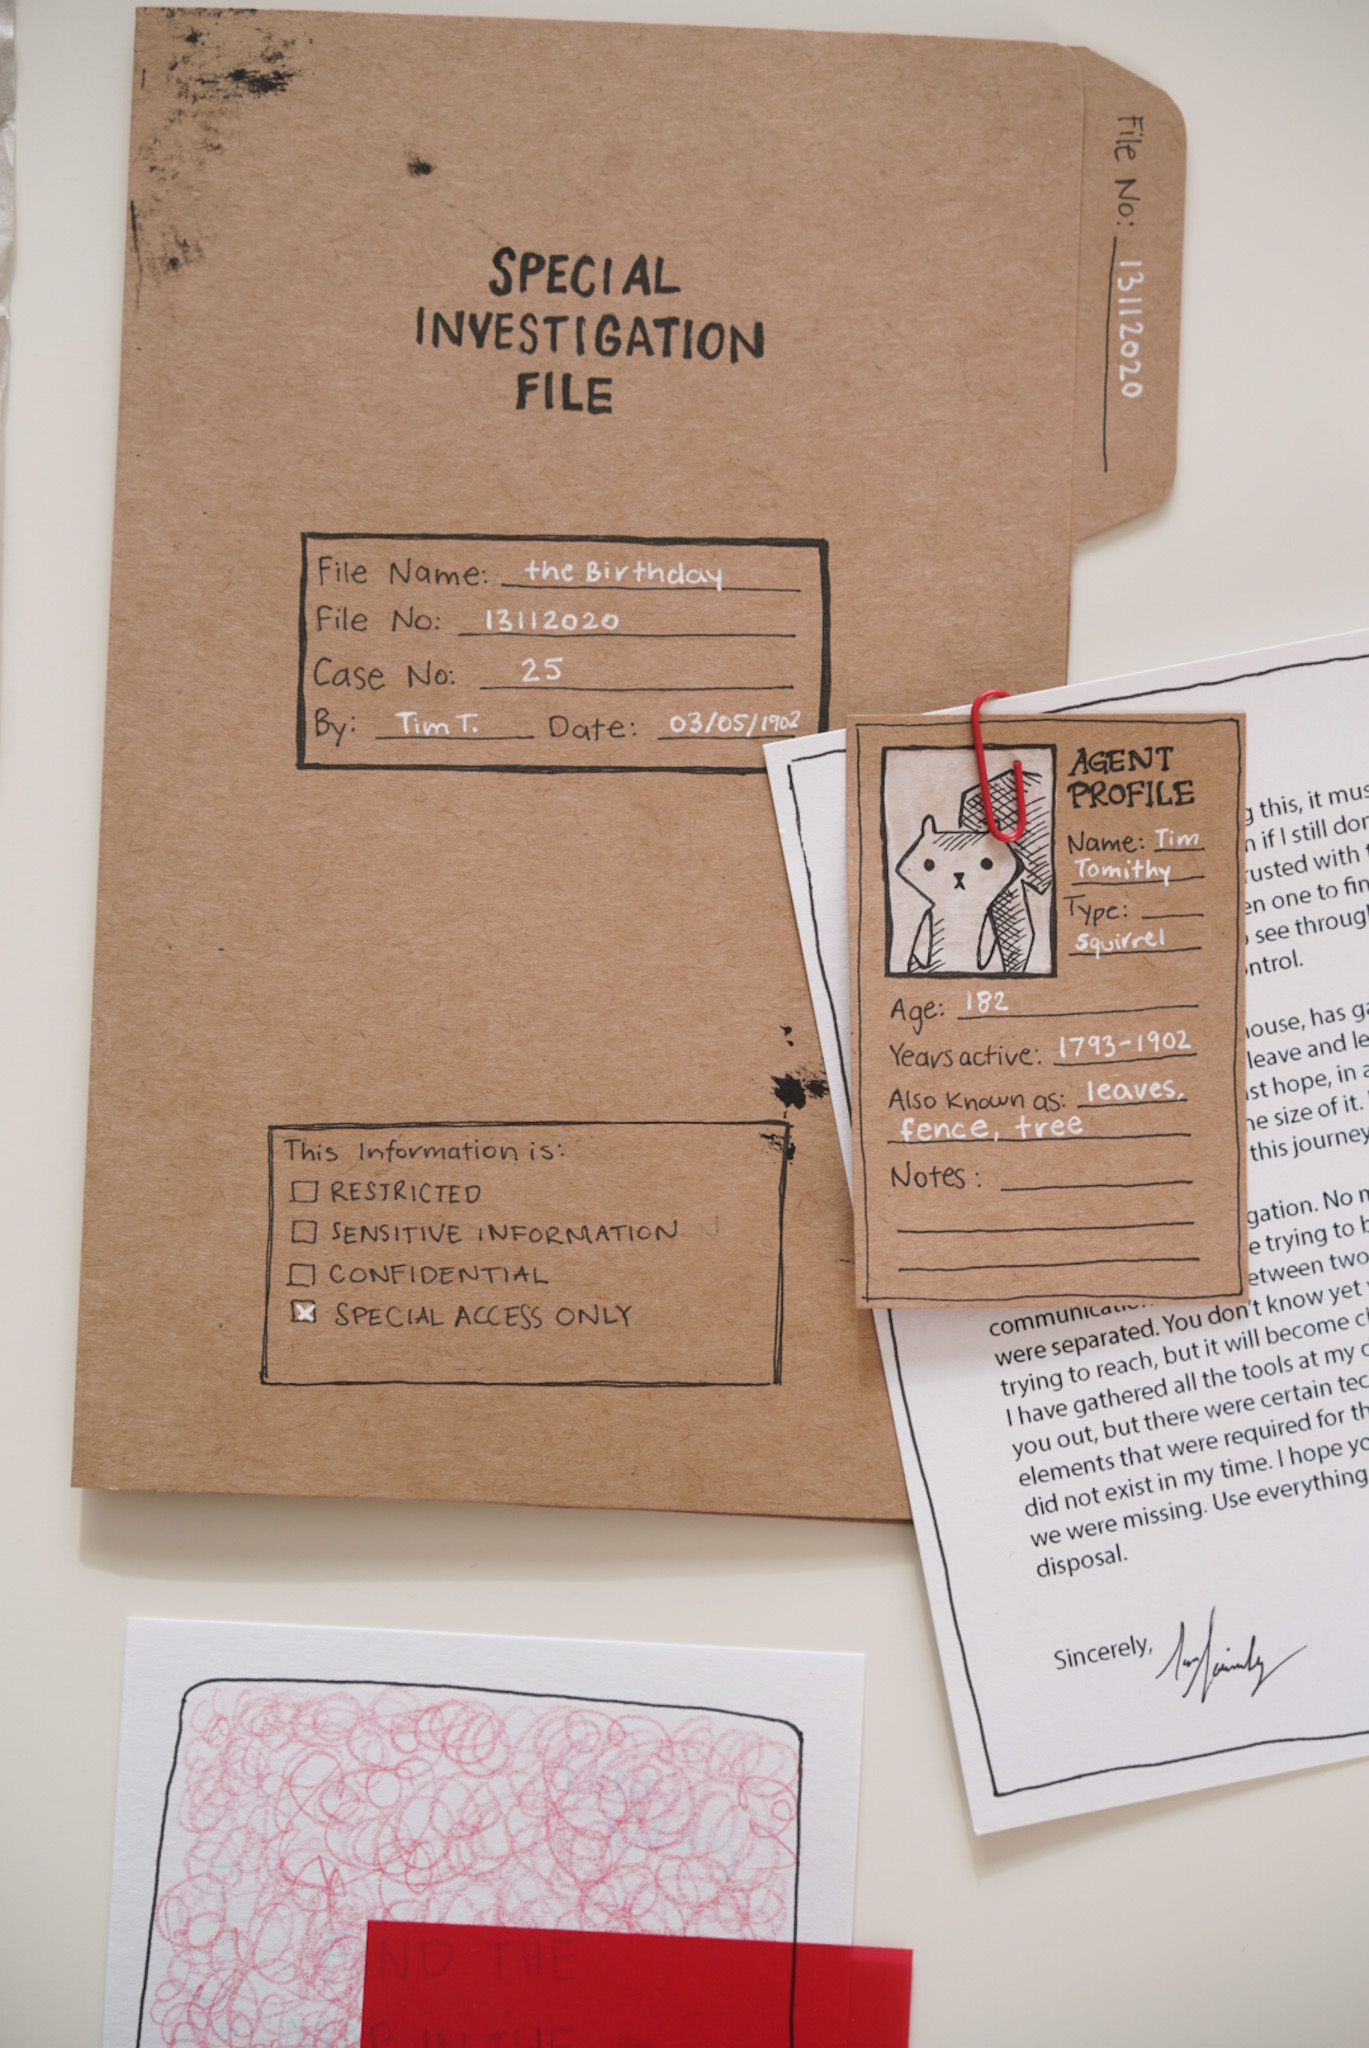 SPECIAL
INVESTIGATION
FILE
File No: 13112020
File Name: the Birthday
File No: 13112020
Case No: 25
By: Tim T. Date: 03/05/1902
This Information is:
RESTRICTED
SENSITIVE INFORMATION
CONFIDENTIAL
SPECIAL ACCESS ONLY
AGENT
PROFILE
Name: Tim
Tomithy
Type:
squirrel
Age: 182
Years active: 1793-1902
Also Known as: leaves,
fence, tree
Notes:
this, it
if I still
with
one to
see
has
leave and
hope, in
size of it.
this journey
No
trying to
two
were separated. You don't know yet
trying to reach, but it will become
I have gathered all the tools at my
you out, but there were certain
elements that were required for
did not exist in my time. I hope
we were missing. Use everything
disposal.
Sincerely,
THE
IN THE